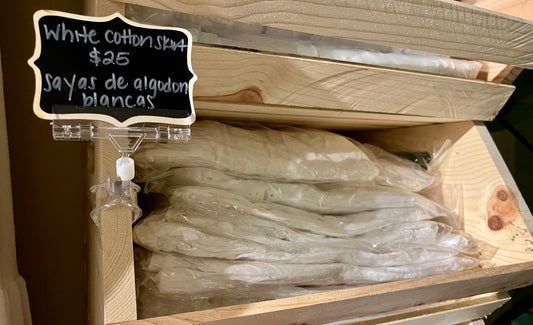 White cotton skirt
$25
sayas de algodon
blancas